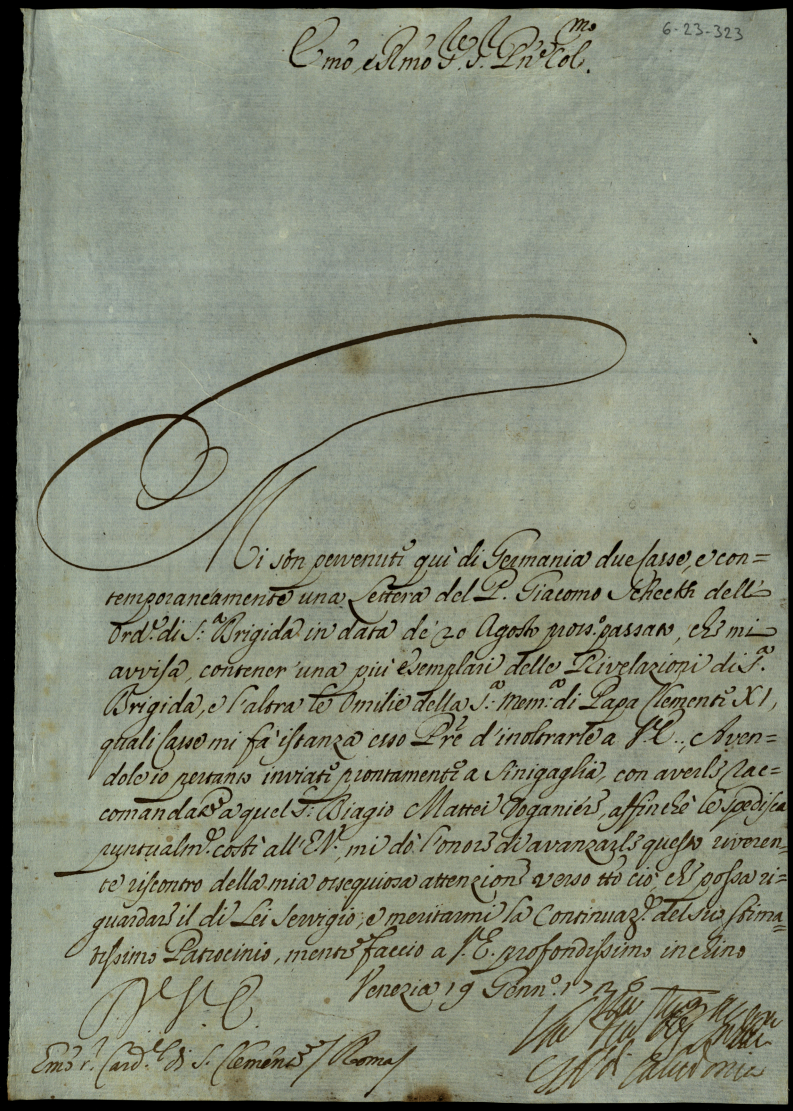 6-23-323
Emo, e Rmo Sre. Sr. Pne Colmo.
Mi son pervenute quì di Germania due Casse, e con=
temporaneamente una Lettera del P. Giacomo Scheckh dell'
Ord.e di S.a Brigida in data de' 20 Agosto pros.o passato, che mi
avvisa, contener una più esemplari delle Rivelazioni di S.a
Brigida, e l'altra le Omilie della S.a Mem.a di Papa Clemente XI,
quali Casse mi fà istanza esso Pre d'inoltrarle a V.E., Aven=
dole io pertanto inviate prontamente a Sinigaglia, con averle rac=
comandate a quel Sr. Biagio Mattei Doganiere, affinchè le spedisca
puntualm.e costì all'E.V., mi dò l'onore di avanzarle questo riveren=
te riscontro della mia ossequiosa attenzione verso tto ciò, che possa ri=
guardare il di Lei Servigio, e meritarmi la Continuaz.e del suo stima=
tissimo Patrocinio, mentre faccio a V.E. profondissimo inchino
Venezia 19 Genn.o
Emo Sr. Card.le di S. Clemente / Roma /